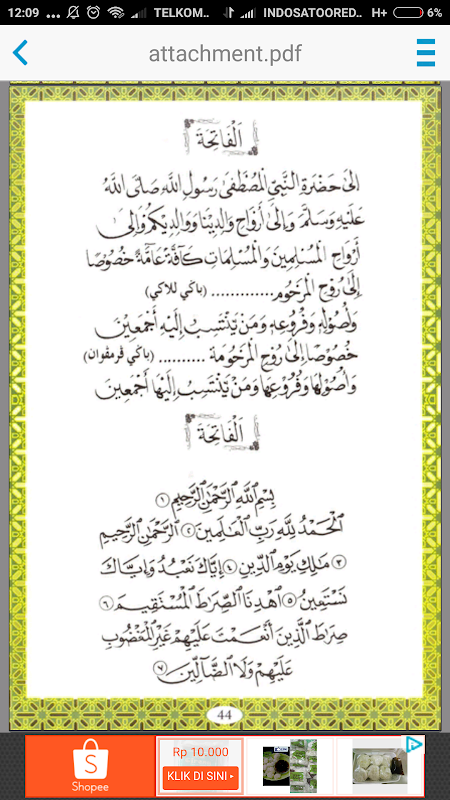 12:09 ... TELKOM.. INDOSATOORED.. H+ 6%
attachment.pdf
اَلْفَاتِحَةُ
اِلَى حَضْرَةِ النَّبِيِّ الْمُصْطَفَى رَسُوْلِ اللهِ صَلَّى اللهُ
عَلَيْهِ وَسَلَّمَ وَاِلَى أَرْوَاحِ وَالِدِيْنَا وَوَالِدِيْكُمْ وَاِلَى
أَرْوَاحِ الْمُسْلِمِيْنَ وَالْمُسْلِمَاتِ كَآفَّةً عَامَّةً خُصُوْصًا
إِلَى رُوْحِ الْمَرْحُوْمِ ............ (باكي للاكي)
وَأُصُوْلِهِ وَفُرُوْعِهِ وَمَنْ يَنْتَسِبُ إِلَيْهِ أَجْمَعِيْنَ
خُصُوْصًا إِلَى رُوْحِ الْمَرْحُوْمَةِ .......... (باكي ڤرمڤوان)
وَأُصُوْلِهَا وَفُرُوْعِهَا وَمَنْ يَنْتَسِبُ إِلَيْهَا أَجْمَعِيْنَ
اَلْفَاتِحَةُ
بِسْمِ اللهِ الرَّحْمٰنِ الرَّحِيْمِ ١
اَلْحَمْدُ لِلّٰهِ رَبِّ الْعٰلَمِيْنَ ٢ الرَّحْمٰنِ الرَّحِيْمِ
٣ مٰلِكِ يَوْمِ الدِّيْنِ ٤ إِيَّاكَ نَعْبُدُ وَإِيَّاكَ
نَسْتَعِيْنُ ٥ اهْدِنَا الصِّرَاطَ الْمُسْتَقِيْمَ ٦
صِرَاطَ الَّذِيْنَ أَنْعَمْتَ عَلَيْهِمْ غَيْرِ الْمَغْضُوْبِ
عَلَيْهِمْ وَلَا الضَّآلِّيْنَ ٧
44
Shopee
Rp 10.000
KLIK DI SINI